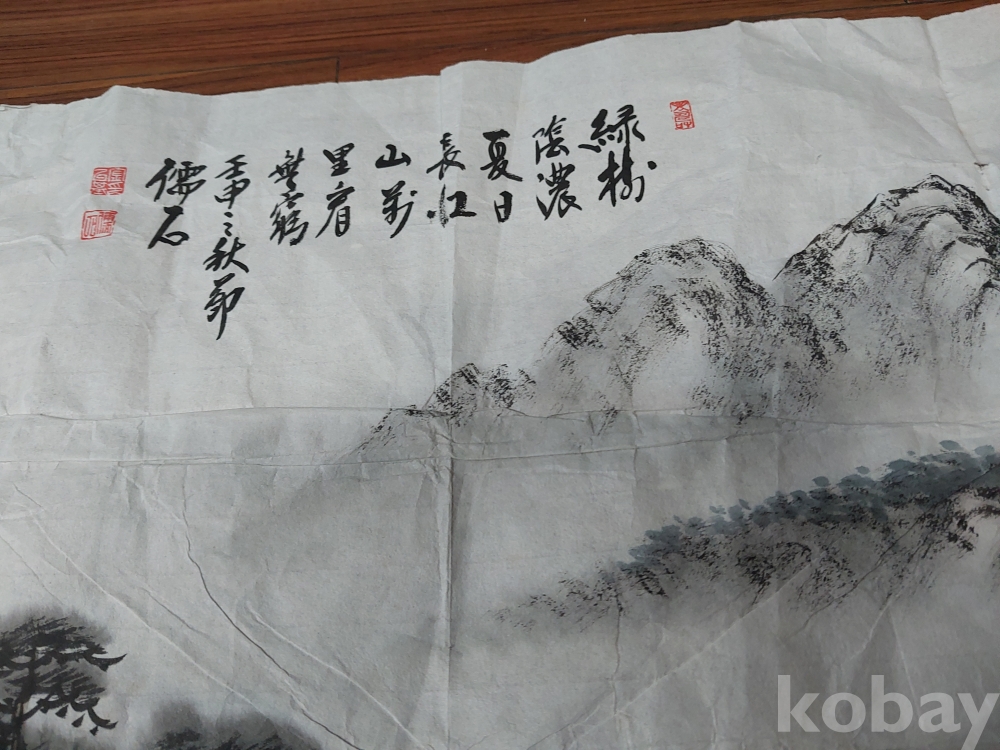 綠樹
陰濃
夏日
長江
山萬
里看
無窮
壬申之秋節
儒石
kobay